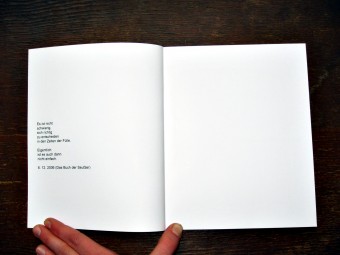 Es ist nicht
schwierig
sich richtig
zu entscheiden
in den Zeiten der Fülle.
Eigentlich
ist es auch dann
nicht einfach.
6. 12. 2006 (Das Buch der Seufzer)